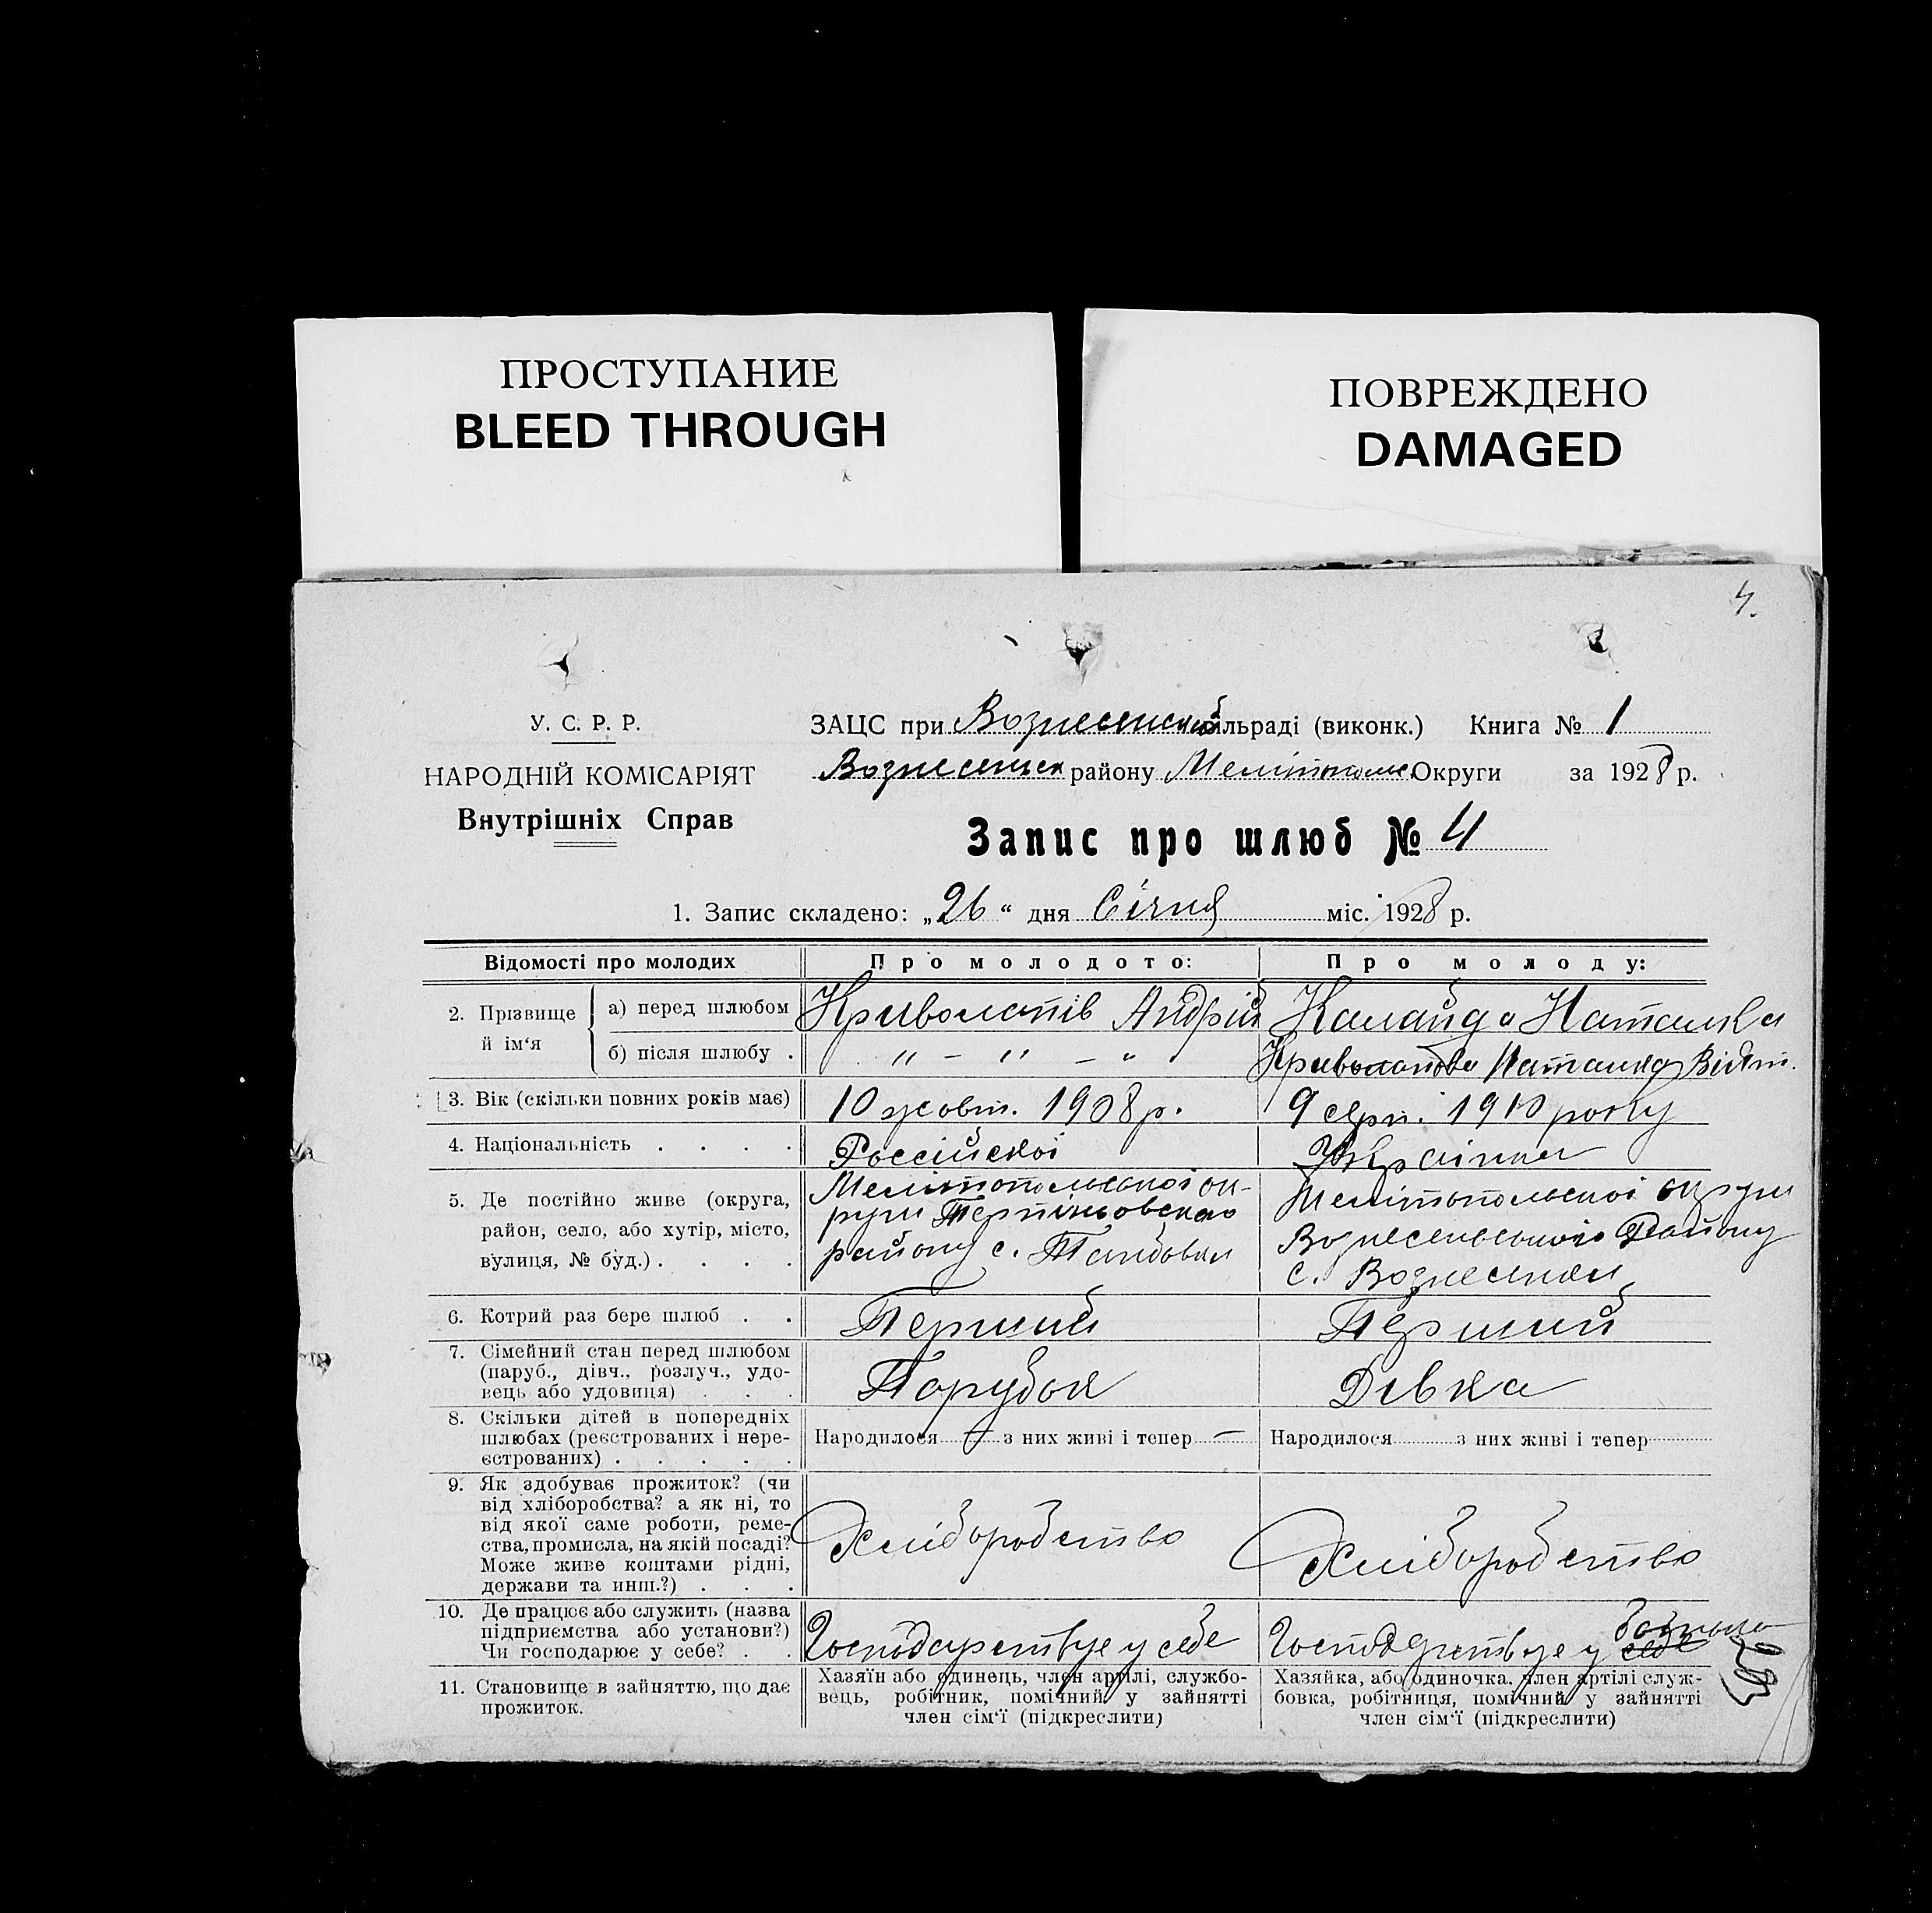 ПРОСТУПАНИЕ
BLEED THROUGH
ПОВРЕЖДЕНО
DAMAGED
4.
У. С. Р. Р.
НАРОДНІЙ КОМІСАРІЯТ
Внутрішніх Справ
ЗАЦС при Вознесенській сільраді (виконк.) Книга № 1
Вознесенськ району Мелітопольс. Округи за 1928 р.
Запис про шлюб № 4
1. Запис складено: „26“ дня Січня міс. 1928 р.
Відомості про молодих
Про молодого:
Про молоду:
2. Прізвище й ім‘я
а) перед шлюбом
Криволапів Андрій
Калайда Наталка
б) після шлюбу .
" – " – "
Криволапова Наталка
3. Вік (скільки повних років має)
10 жовт. 1908 р.
9 серп. 1910 року
4. Національність . . . .
Россійской
Українка
5. Де постійно живе (округа,
район, село, або хутір, місто,
вулиця, № буд.) . . . .
Мелітопольської ок-
руги Терпіньовского
району с. Тамбовки
Мелітопольскої округи
Вознесенського Району
с. Вознесенки
6. Котрий раз бере шлюб . .
Перший
Перший
7. Сімейний стан перед шлюбом
(паруб., дівч., розлуч., удо-
вець або удовиця) . . .
Парубок
Дівка
8. Скільки дітей в попередніх
шлюбах (реєстрованих і нере-
єстрованих) . . . . .
Народилося – з них живі і тепер –
Народилося з них живі і тепер
9. Як здобуває прожиток? (чи
від хліборобства? а як ні, то
від якої саме роботи, реме-
ства, промисла, на якій посаді?
Може живе коштами рідні,
держави та инш.?) . . .
Хліборобство
Хліборобство
10. Де працює або служить (назва
підприємства або установи?)
Чи господарює у себе? . .
Господарствує у себе
Господарствує у себе
11. Становище в зайняттю, що дає
прожиток.
Хазяїн або одинець, член артілі, службо-
вець, робітник, помічний у зайнятті
член сім‘ї (підкреслити)
Хазяйка, або одиночка, член артілі служ-
бовка, робітниця, помічний у зайнятті
член сім‘ї (підкреслити)